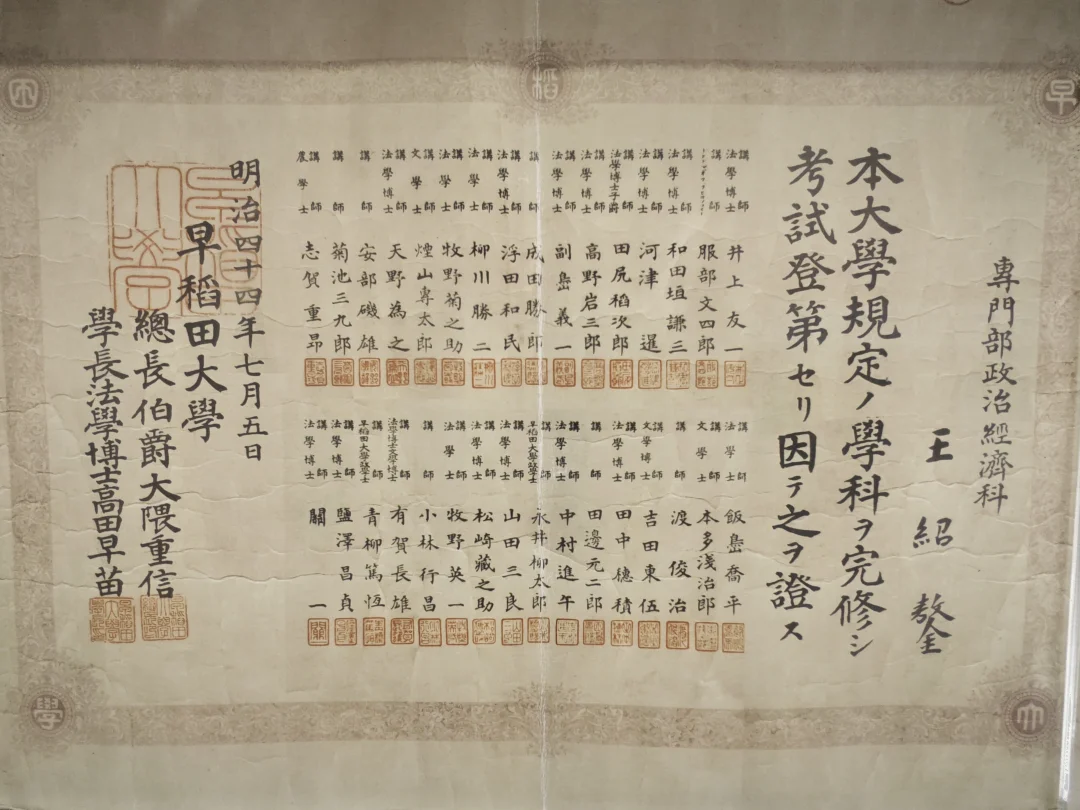 専門部政治經濟科
王紹鏊
本大學規定ノ學科ヲ完修シ
考試登第セリ因テ之ヲ證ス
講師法學博士 井上友一
講師 服部文四郎
講師法學博士 和田垣謙三
講師法學博士 河津暹
講師法學博士子爵 田尻稻次郎
講師法學博士 高野岩三郎
講師法學博士 副島義一
講師 成田勝郎
講師法學博士 浮田和民
講師法學士 柳川勝二
講師法學士 牧野菊之助
講師文學士 煙山專太郎
講師法學博士 天野為之
講師 安部磯雄
講師 菊池三九郎
講師農學士 志賀重昂
講師法學士 飯島喬平
講師文學士 本多淺治郎
講師 渡俊治
講師文學博士 吉田東伍
講師法學博士 田中穗積
講師 田邊元二郎
講師法學博士 中村進午
講師早稻田大學得業士 永井柳太郎
講師法學博士 山田三良
講師法學博士 松崎藏之助
講師法學士 牧野英一
講師 小林行昌
講師法學博士文學博士 有賀長雄
講師早稻田大學得業士 青柳篤恒
講師法學博士 鹽澤昌貞
講師法學博士 關一
明治四十四年七月五日
早稻田大学
總長伯爵大隈重信
學長法學博士高田早苗
早
稻
田
大
學